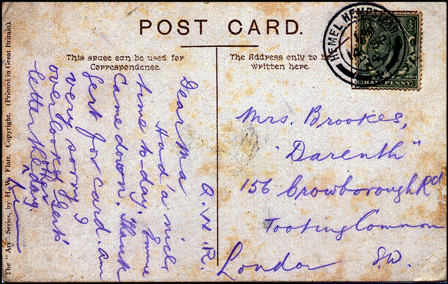 POST CARD.
This space can be used for
Correspondence.
The Address only to be
written here.
HEMEL HEMPSTEAD
Dear Ma
Had a nice
time to day. Emmie
Came down. Thank
Gert for card. Am
very sorry I
overlooked Gert's
letter the other day.
A.W.R.
Mrs. Brookes,
"Darenth"
156 Crowborough Rd
Tooting Common
London S.W.
The "Art" Series, by H. Flatt. Copyright. (Printed in Great Britain).